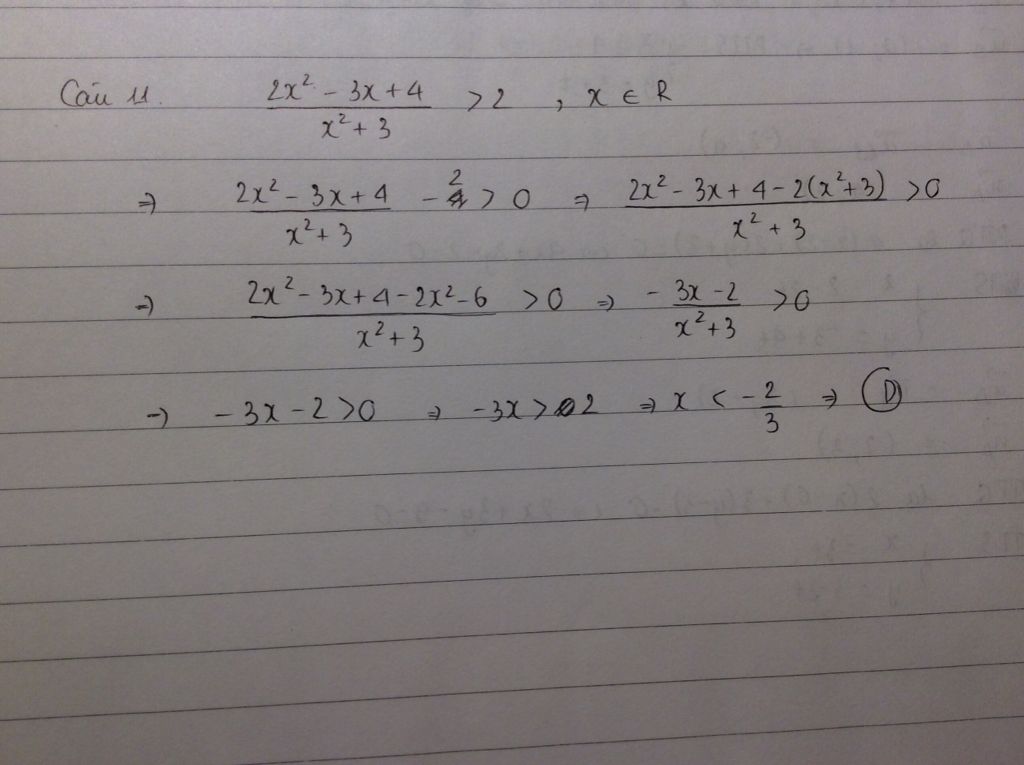 Câu 11. (2x² - 3x + 4)/(x² + 3) > 2 , x ∈ R
⇒ (2x² - 3x + 4)/(x² + 3) - 2 > 0 ⇒ (2x² - 3x + 4 - 2(x² + 3))/(x² + 3) > 0
⇒ (2x² - 3x + 4 - 2x² - 6)/(x² + 3) > 0 ⇒ - (3x - 2)/(x² + 3) > 0
⇒ - 3x - 2 > 0 ⇒ -3x > 2 ⇒ x < - 2/3 ⇒ D